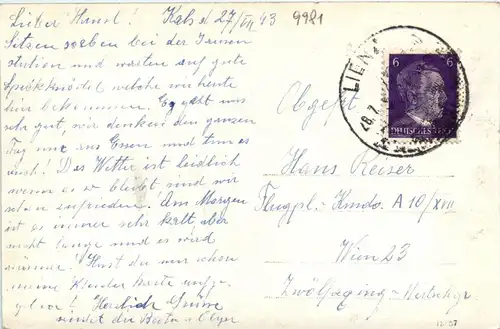 Lieber Hansl! Kals d 27/VII 43
9981
Sitzen soeben bei der Jausen
station und warten auf gute
Speckknödel welche wir heute
hier bekommen. Es geht uns
sehr gut, wir denken den ganzen
Tag nur ans Essen und tun es
auch! Das Wetter ist leidlich
wenn es so bleibt sind wir
schon zufrieden. Am Morgen
ist es immer sehr kalt aber
nicht lange und es wird
wärmer. Hast du mir schon
meine Kleiderkarte aufge-
Herzliche Grüsse
sendet dir Berta u. Olga
LIENZ
6 6
DEUTSCHES REICH
Obgefr.
Hans Reiser
Flugpl. - Kmdo. A 10/XVII
Wien 23
Zwölfaxing -